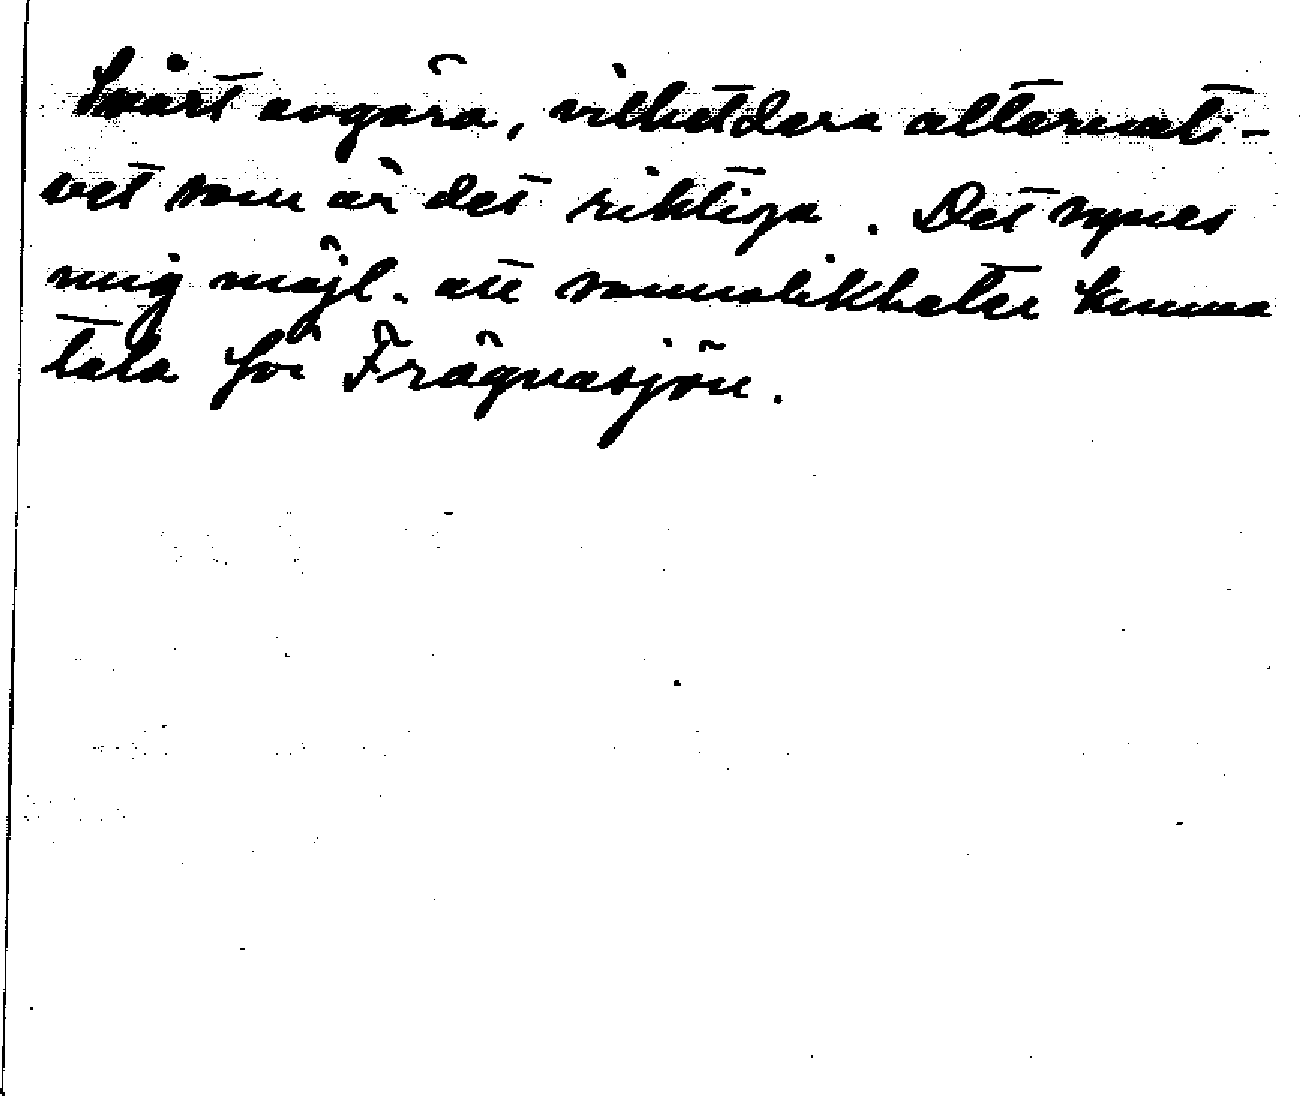 Svårt avgöra, vilketdera alternati-
vet som är det riktiga. Det synes
mig möjl. att sannolikheter kunna
tala för Frägnasjön.